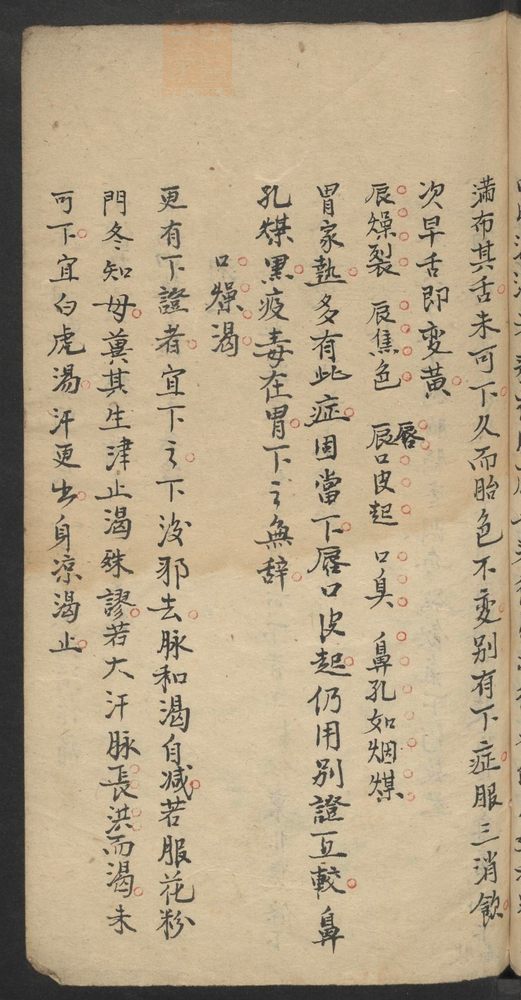 滿布其舌未可下久而胎色不变別有下症服三消飲
次早舌即变黄
辰燥裂 辰焦色 唇口皮起 口臭 鼻孔如烟煤
胃家熱多有此症固當下唇口皮起仍用別證互較鼻
孔煤黒疫毒在胃下之無辞
口燥渴
更有下證者宜下之下後邪去脉和渴自减若服花粉
門冬知母冀其生津止渴殊謬若大汗脉長洪而渴未
可下宜白虎湯汗更出身凉渴止